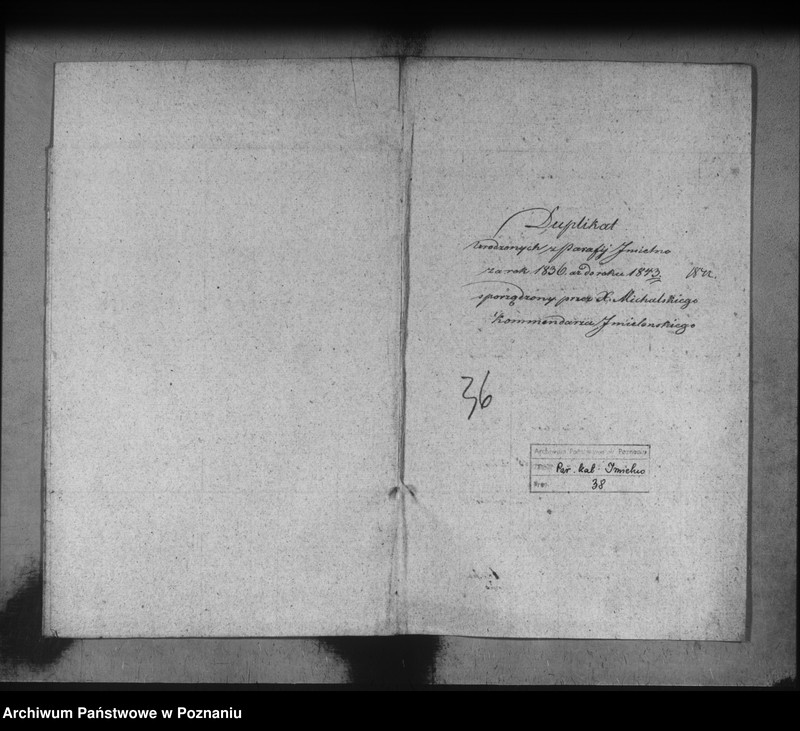 Duplikat
Urodzonych z Parafij Imielno
za rok 1836. aż do roku 1843.
sporządzony przez X. Michalskiego
Kommendarza Imielenskiego
36
Archiwum Państwowe w Poznaniu
Par. kat. Imielno
38
Archiwum Państwowe w Poznaniu